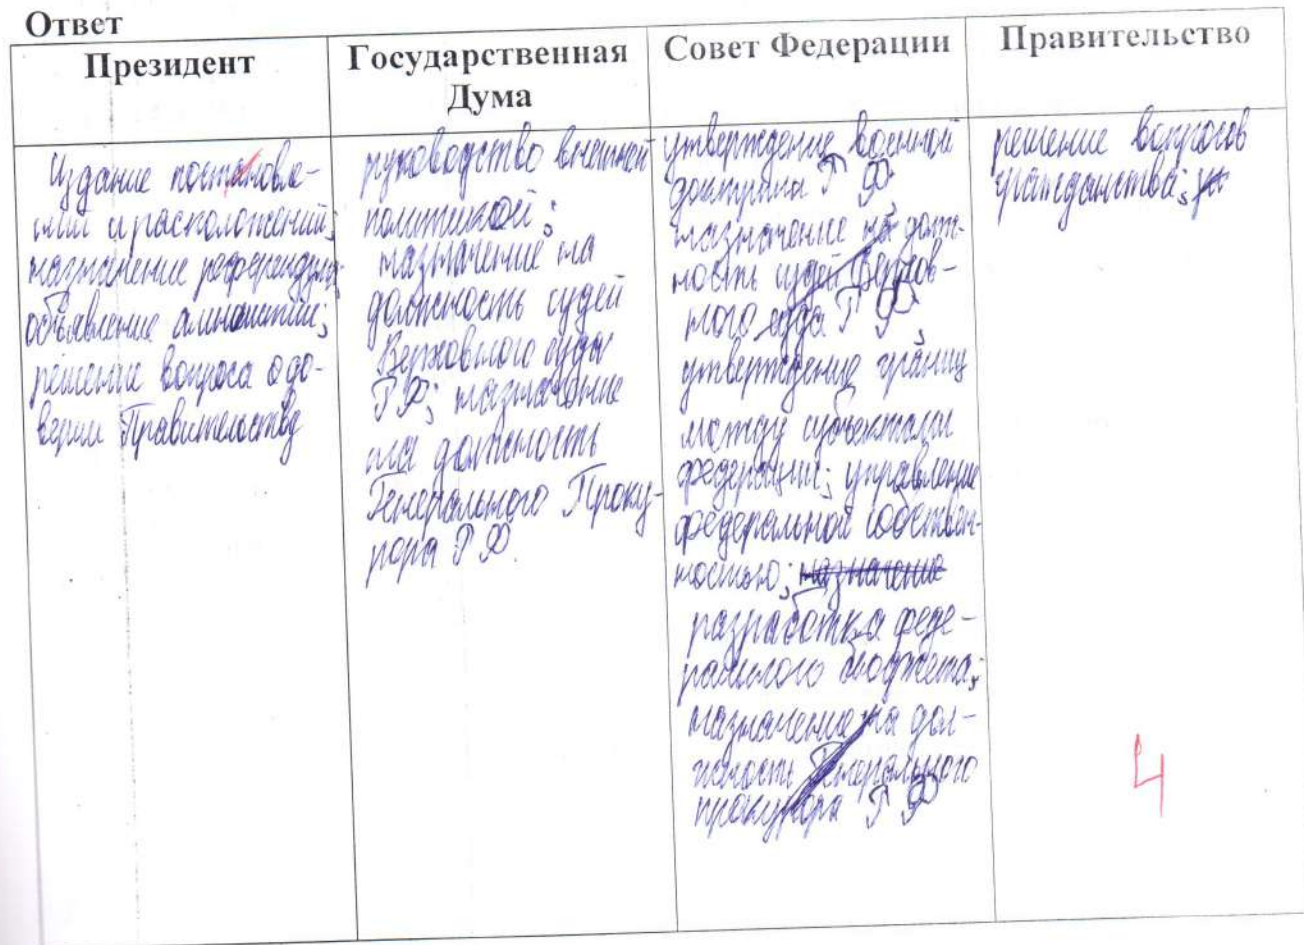 Ответ
Президент
Издание постановле-
ний и расположений;
назначение референдума;
объявление амнистии;
решение вопроса о до-
верии Правительству
Государственная
Дума
руководство внешней
политикой;
назначение на
должность судей
Верховного суда
РФ; назначение
на должность
Генерального Проку-
рора РФ.
Совет Федерации
утверждение военной
доктрины РФ,
назначение на долж-
ность судей Верхов-
ного суда РФ,
утверждение границ
между субъектами
федерации; управление
федеральной собствен-
ностью; назначение
разработка феде-
рального бюджета;
назначение на дол-
жность Генерального
прокурора РФ
Правительство
решение вопросов
гражданства;
4